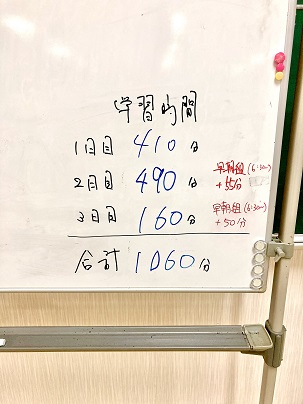 学習時間
1日目 410分
2日目 490分 早朝組(6:30〜) +55分
3日目 160分 早朝組(6:30〜) +50分
合計 1060分